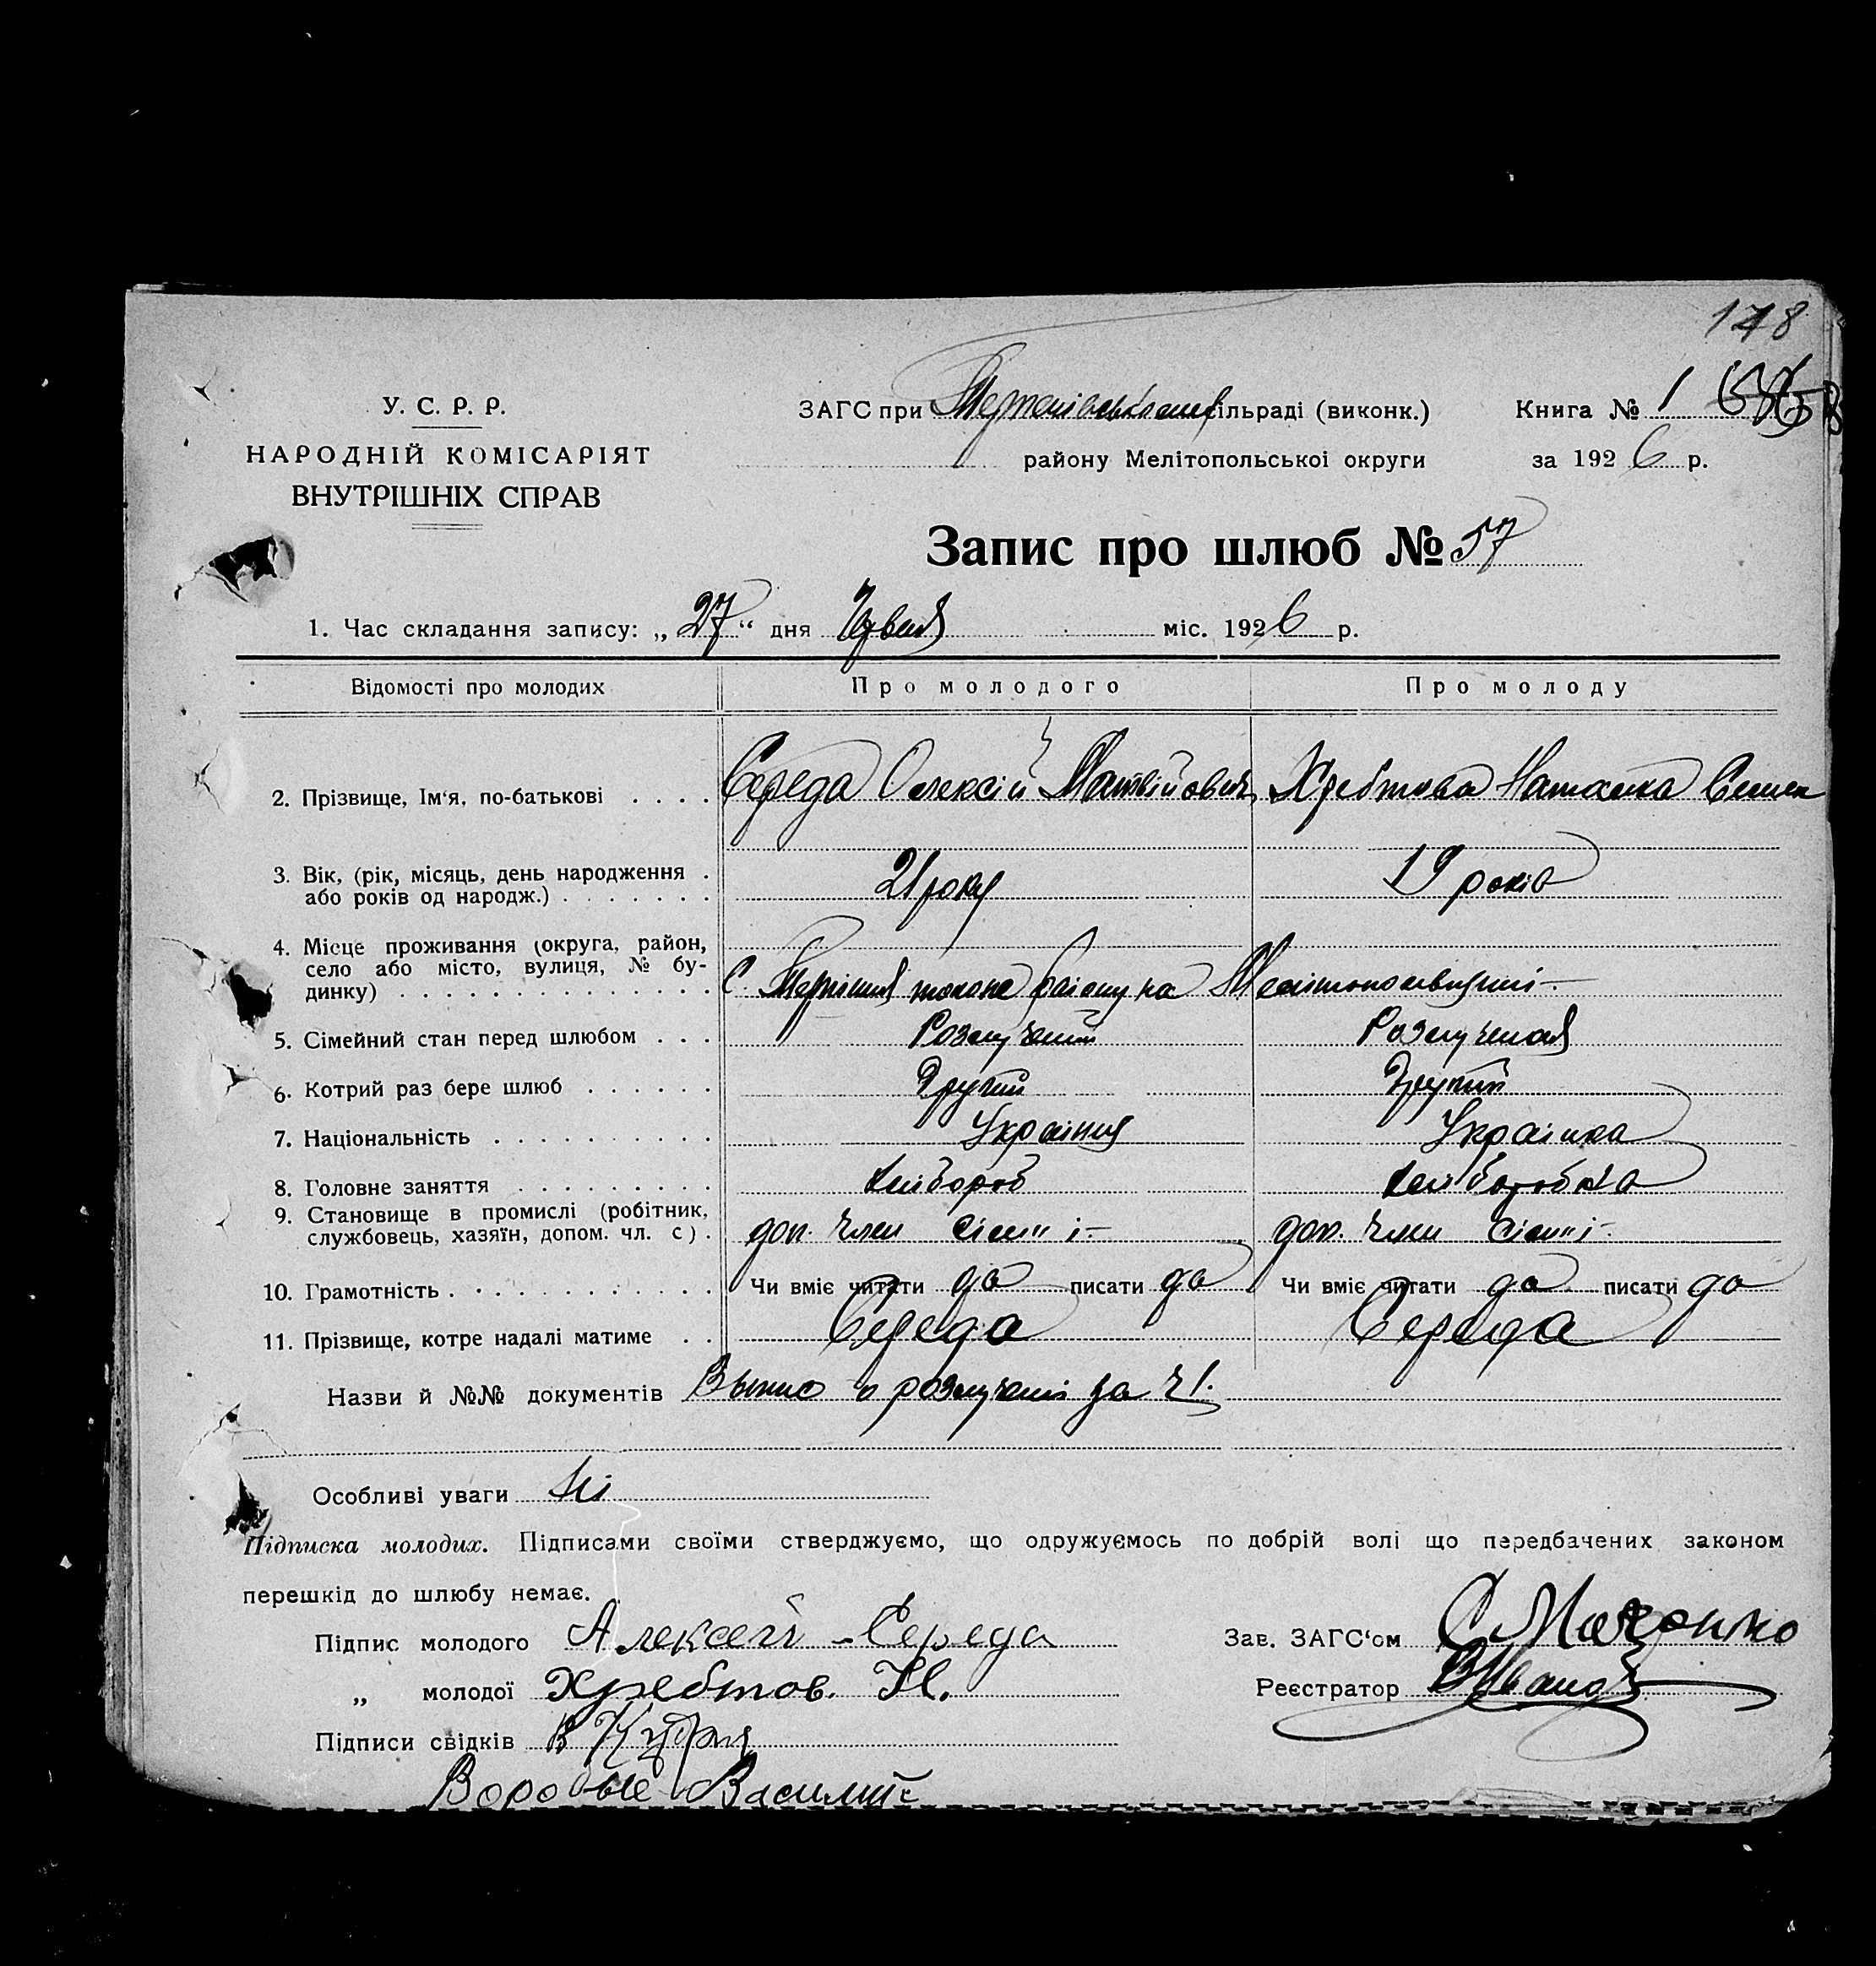 178
У. С. Р. Р.
НАРОДНІЙ КОМІСАРІЯТ
ВНУТРІШНІХ СПРАВ
ЗАГС при сільраді (виконк.)
району Мелітопольськоі округи
Книга № 1
за 1926 р.
Запис про шлюб № 57
1. Час складання запису: „27“ дня міс. 1926 р.
Відомості про молодих
Про молодого
Про молоду
2. Прізвище, Ім‘я, по-батькові . . . . Середа Олексій Матвійович Хребтова Наталка Семен
3. Вік, (рік, місяць, день народження .
або років од народж.) . . . . . . . 21 року 19 років
4. Місце проживання (округа, район,
село або місто, вулиця, № бу-
динку) . . . . . . . . . . . . . . С. району на Мелітопольщині
5. Сімейний стан перед шлюбом . . . Розлучений Розлученая
6. Котрий раз бере шлюб . . . . . . Другий Другий
7. Національність . . . . . . . . . . Українця Українка
8. Головне заняття . . . . . . . . . хлібороб хліборобка
9. Становище в промислі (робітник,
службовець, хазяїн, допом. чл. с) . доп. член сім"і доп. член сім"і
10. Грамотність . . . . . . . . . . . . Чи вміє читати да писати да Чи вміє читати да писати да
11. Прізвище, котре надалі матиме . . Середа Середа
Назви й №№ документів Выпис о розлучені за
Особливі уваги Ні
Підписка молодих. Підписами своїми стверджуємо, що одружуємось по добрій волі що передбачених законом
перешкід до шлюбу немає.
Підпис молодого Алексей Середа
Зав. ЗАГС‘ом
„ молодої Хребтов. Н.
Реєстратор
Підписи свідків В
Василий